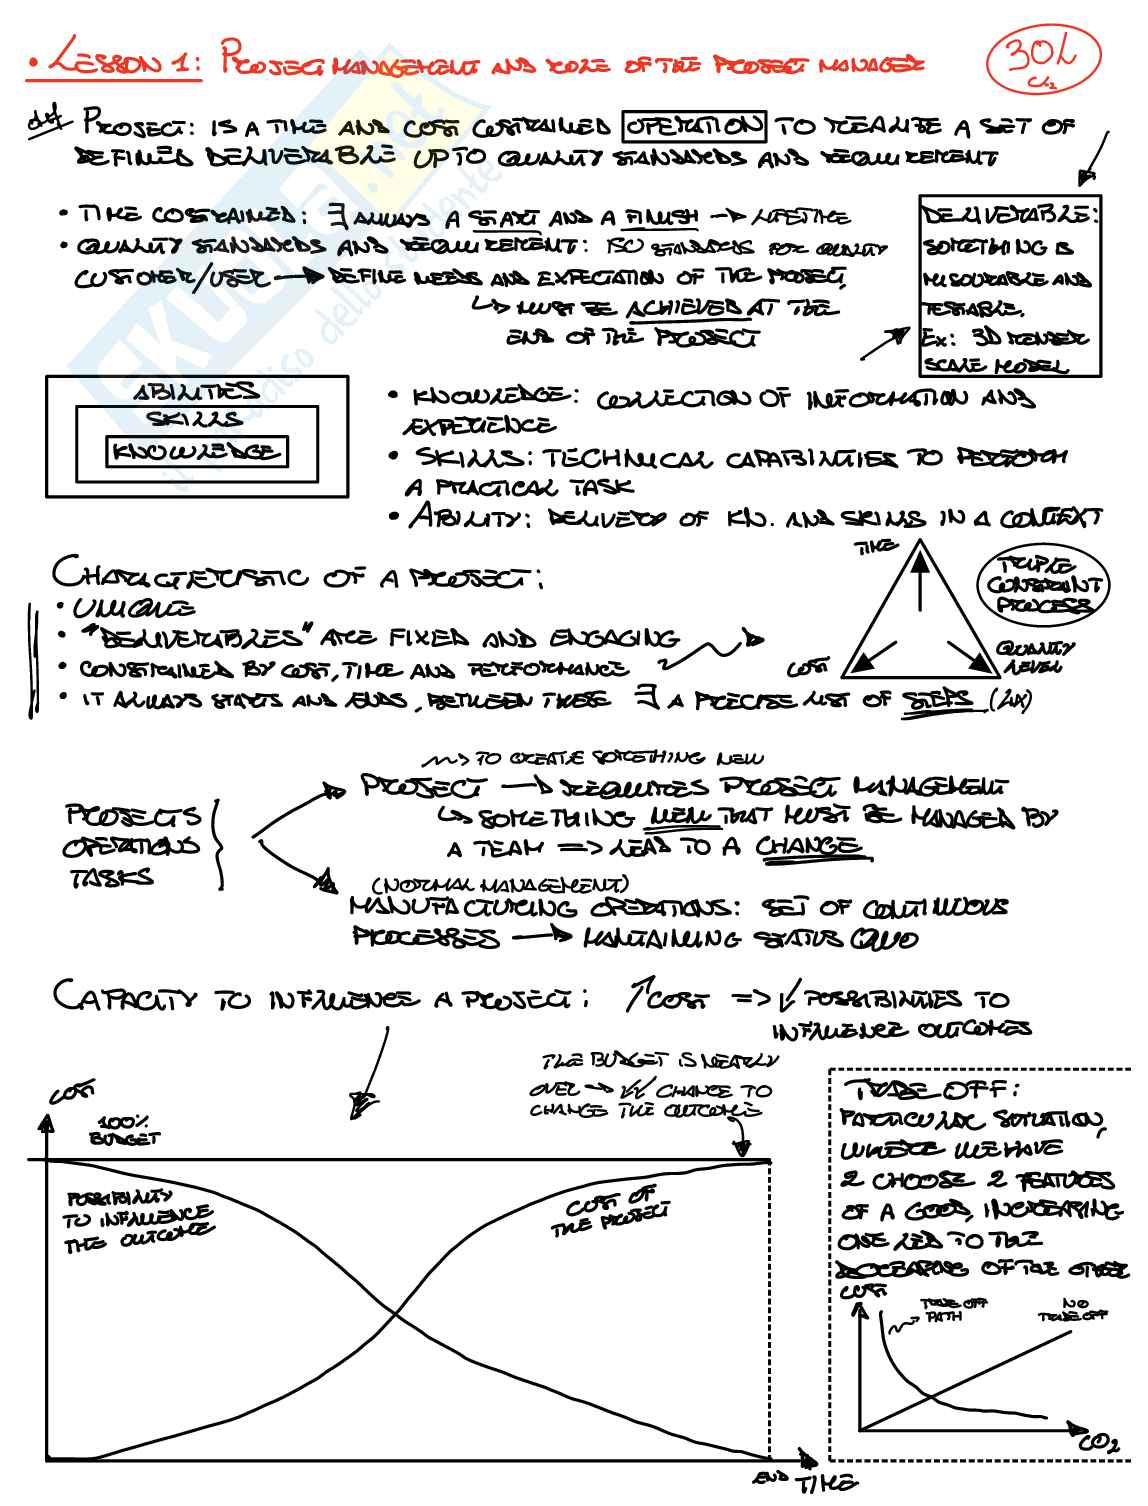 • LESSON 1: PROJECT MANAGEMENT AND ROLE OF THE PROJECT MANAGER
30L
def PROJECT: IS A TIME AND COST COSTRAINED OPERATION TO REALIZE A SET OF
DEFINED DELIVERABLE UP TO QUALITY STANDARDS AND REQUIREMENT
• TIME COSTRAINED: ∃ ALWAYS A START AND A FINISH → LIFETIME
• QUALITY STANDARDS AND REQUIREMENT: ISO STANDARDS FOR QUALITY
CUSTOMER/USER → DEFINE NEEDS AND EXPECTATION OF THE PROJECT,
↳ MUST BE ACHIEVED AT THE
END OF THE PROJECT
DELIVERABLE:
SOMETHING IS
MISOURABLE AND
TESTABLE.
EX: 3D RENDER
SCALE MODEL
ABILITIES
SKILLS
KNOWLEDGE
• KNOWLEDGE: COLLECTION OF INFORMATION AND
EXPERIENCE
• SKILLS: TECHNICAL CAPABILITIES TO PERFORM
A PRACTICAL TASK
• ABILITY: DELIVERY OF KN. AND SKILLS IN A CONTEXT
CHARACTERISTIC OF A PROJECT:
• UNIQUE
• "DELIVERABLES" ARE FIXED AND ENGAGING
• CONSTRAINED BY COST, TIME AND PERFORMANCE
• IT ALWAYS STARTS AND ENDS, BETWEEN THESE ∃ A PRECISE LIST OF STEPS
TIME
COST
QUALITY
LEVEL
TRIPLE
CONSTRAINT
PROCESS
PROJECTS
OPERATIONS
TASKS
TO CREATE SOMETHING NEW
PROJECT → REQUIRES PROJECT MANAGEMENT
↳ SOMETHING NEW THAT MUST BE MANAGED BY
A TEAM => LEAD TO A CHANGE
(NORMAL MANAGEMENT)
MANUFACTURING OPERATIONS: SET OF CONTINUOUS
PROCESSES → MANTAINING STATUS QUO
CAPACITY TO INFLUENCE A PROJECT: ↗ COST => ↙ POSSIBILITIES TO
INFLUENCE OUTCOMES
THE BUDGET IS NEARLY
OVER → ↙↙ CHANCE TO
CHANGE THE OUTCOMES
COST
100%
BUDGET
POSSIBILITY
TO INFLUENCE
THE OUTCOME
COST OF
THE PROJECT
END
TIME
TRADE OFF:
PARTICULAR SITUATION,
WHERE WE HAVE
2 CHOOSE 2 FEATURES
OF A GOOD, INCREASING
ONE LED TO THE
DECREASING OF THE OTHER
COST
TRADE OFF
PATH
NO
TRADE OFF
CO2
SKUOLA.net
il paradiso dello studente